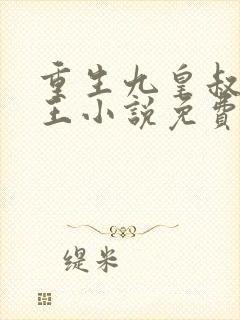 重生九皇叔
王小説免費
缇米